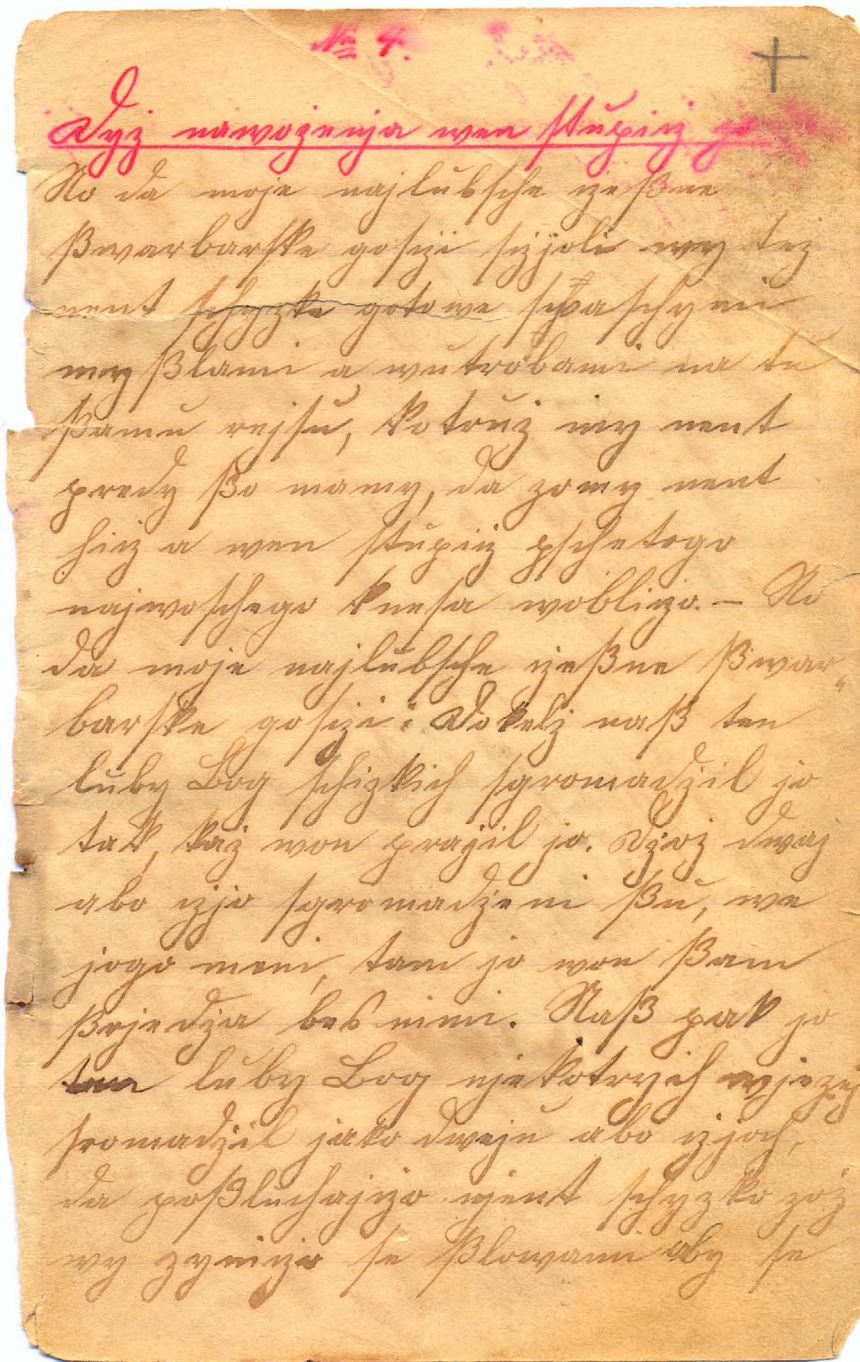 No 4.
Dyz nawozenja wen stupiz jo
No da moje najlubsche zeßne
ßwarbarske goszi szjoli wy tez
nent schyzke gotowe swaschymi
myßlami a wutrobami na tu
ßamu rejsu, kotruz my nent
predy ßo mamy, da zomy nent
hiz a wen stupiz pschetogo
najwoschego knesa woblizo. – No
da moje najlubsche zeßne ßwar-
barske goszi: Dokelz naß ten
luby Bog schizkich sgromadzil jo
tak, kaz won prajil jo. Dzoz dwaj
abo zjo sgromadzeni ßu, we
jogo meni, tam jo won ßam
ßrjedza bes nimi. Naß pak jo
ten luby Bog njekotrych wjezej
sromadzil jako dweju abo zjoch,
da poßluchajzo njent schyzko zoz
wy zynizo se ßlowami aby se